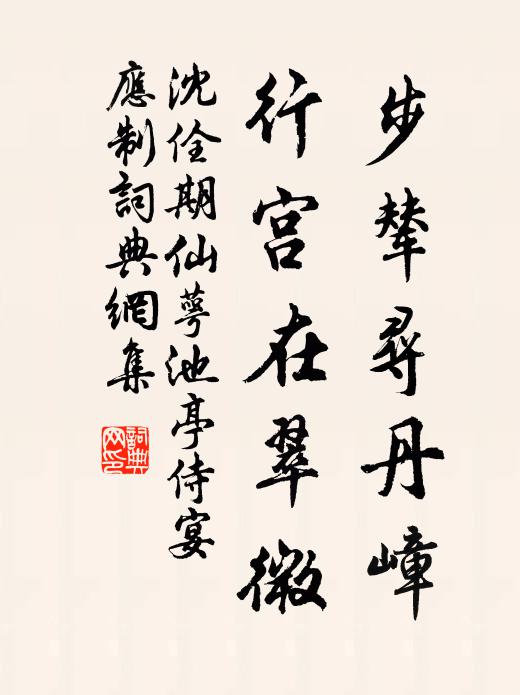 步輦尋丹嶂
行宮在翠微
沈佺期仙萼池亭侍宴
應制詞典網集
詞典网印